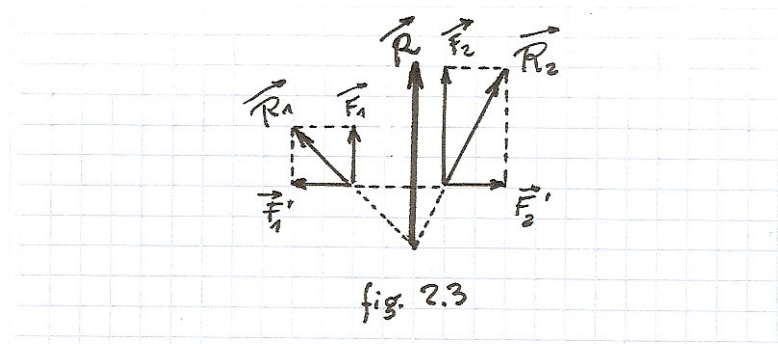 R F₂ R₂
R₁ F₁
F₁' F₂'
fig. 2.3